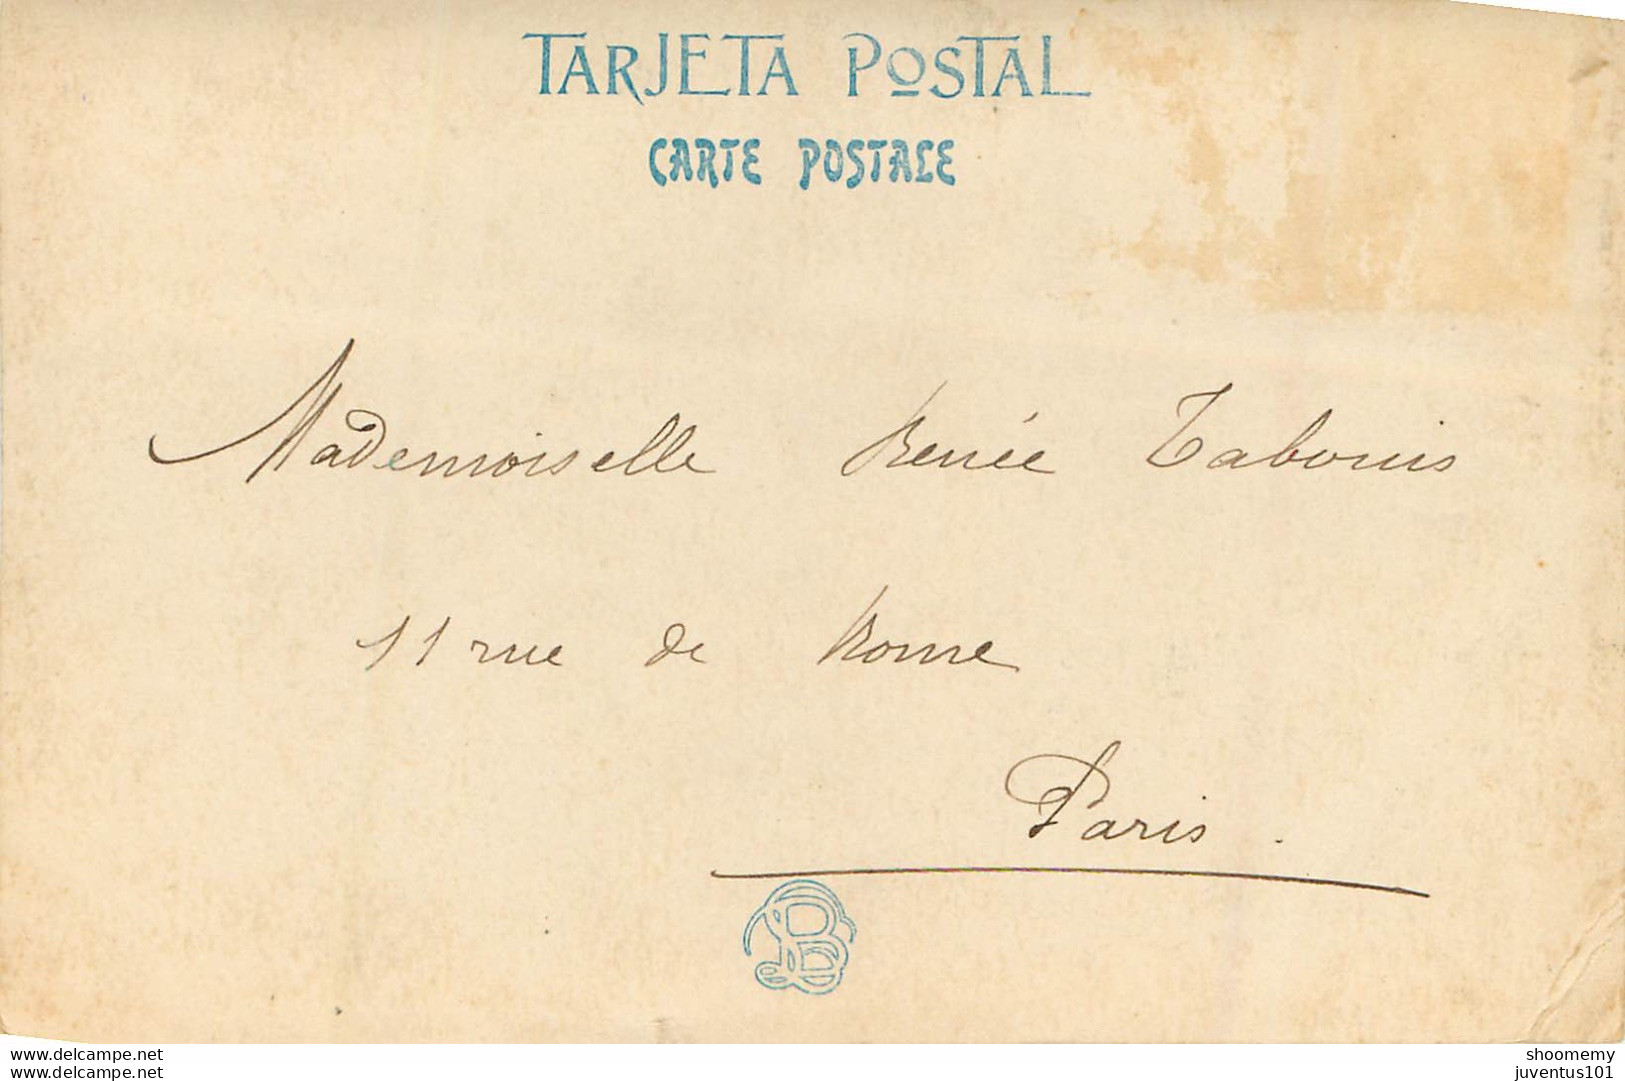 TARJETA POSTAL
CARTE POSTALE
Mademoiselle Renée Tabouis
11 rue de Rome
Paris.
B
www.delcampe.net shoomemy
www.delcampe.net juventus101